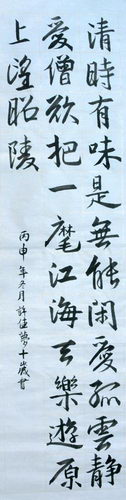 清時有味是無能閑愛孤雲靜
愛僧欲把一麾江海去樂遊原
上望昭陵
丙申年冬月許佳夢十歲書